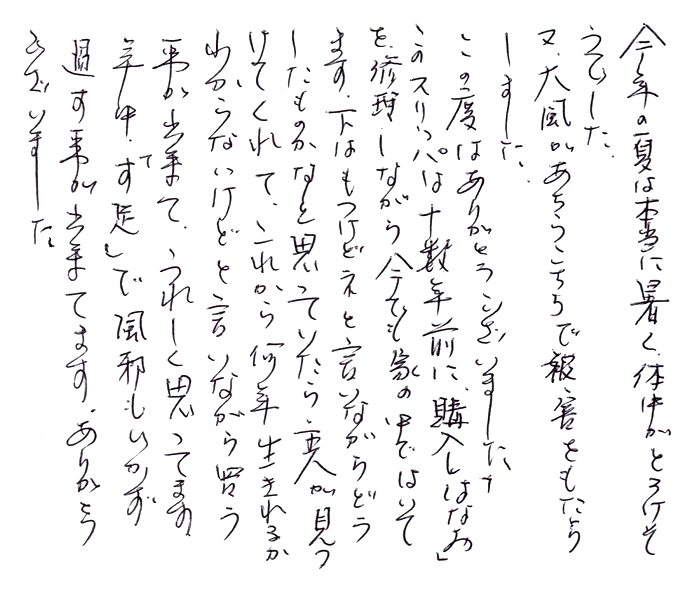 今年の夏は本当に暑く、体中がとろけそ
うでした。
又、大風があちらこちらで被害をもたら
しました。
この度はありがとうございました。
このスリッパは十数年前に、購入し「はなお」
を、修理しながら今でも家の中ではいて
ます。下はもつけどネと言いながらどう
したものかなと思っていたら、主人が見つ
けてくれて、これから何年生きれるか
わからないけどと言いながら買う
事が出来て、うれしく思ってます。
年中「す足」で風邪もひかず
過す事が出来てます。ありがとう
ございました。